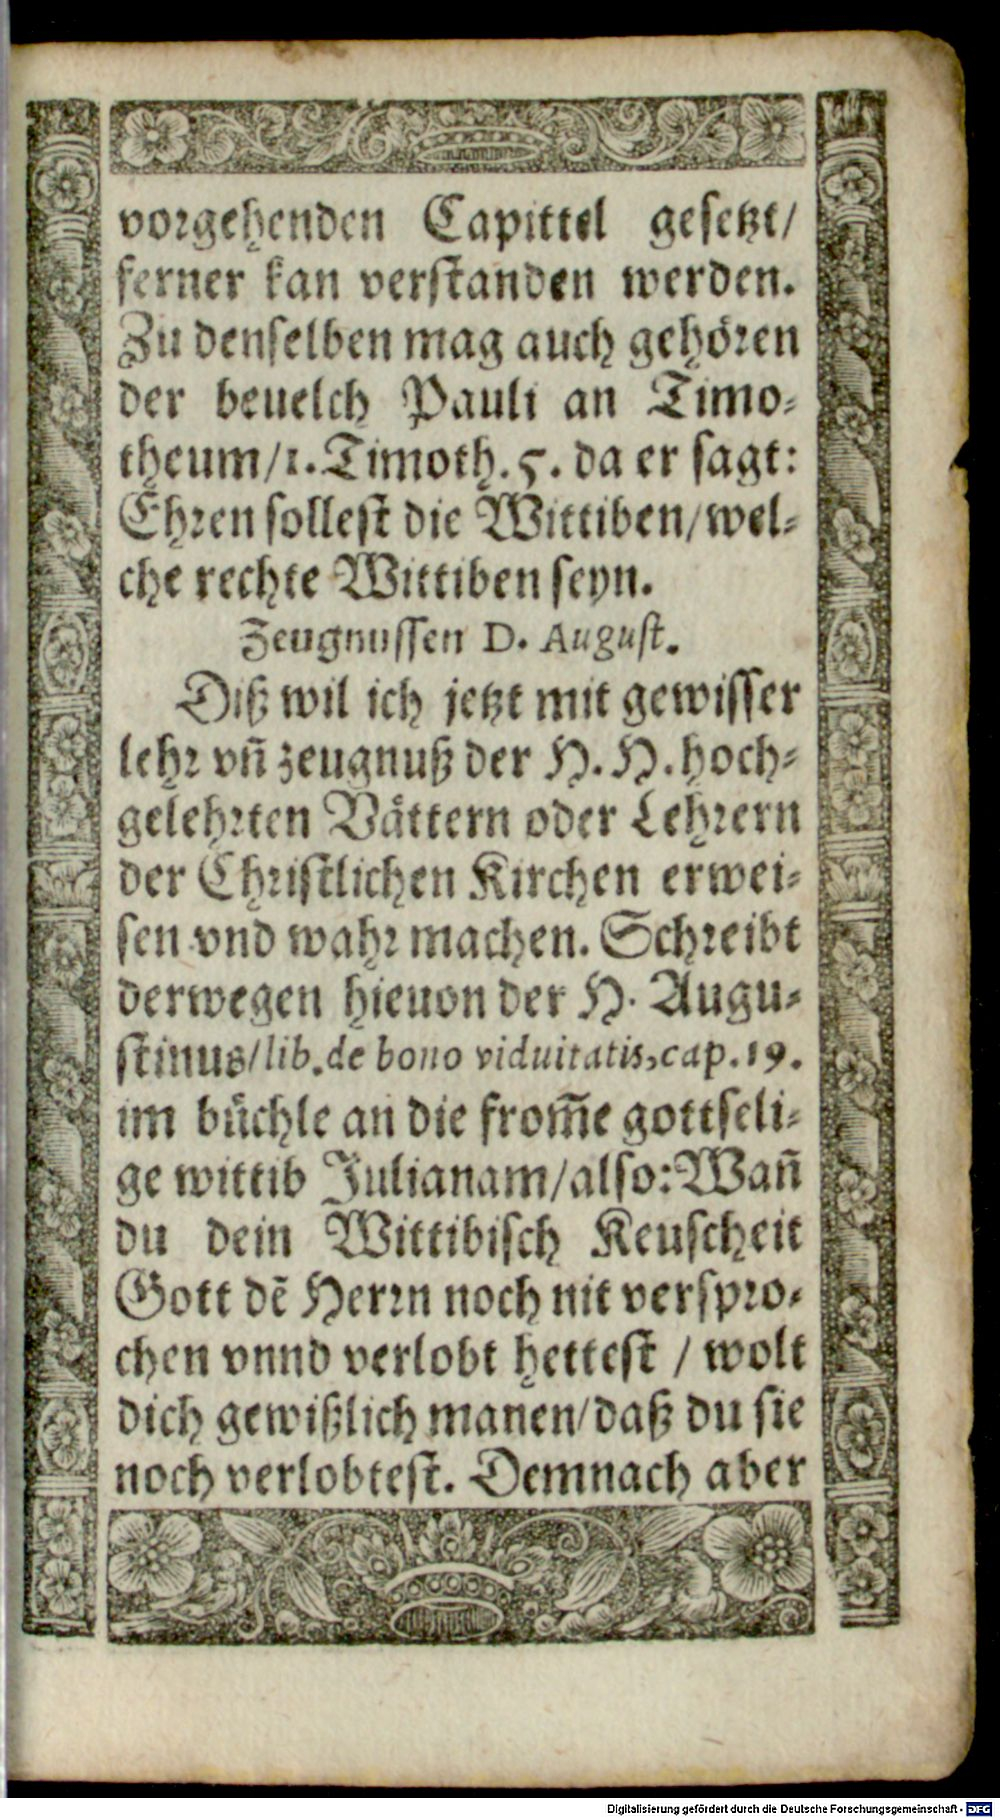 vorgehenden Capittel gesetzt/
ferner kan verstanden werden.
Zu denselben mag auch gehören
der beuelch Pauli an Timo-
theum/1. Timoth. 5. da er sagt:
Ehren sollest die Wittiben/wel-
che rechte Wittiben seyn.
Zeugnussen D. August.
Diß wil ich jetzt mit gewisser
lehr vñ zeugnuß der H. H. hoch-
gelehrten Vättern oder Lehrern
der Christlichen Kirchen erwei-
sen vnd wahr machen. Schreibt
derwegen hieuon der H. Augu-
stinus/lib. de bono viduitatis, cap. 19.
im büchle an die from̃e gottseli-
ge wittib Julianam/also: Wañ
du dein Wittibisch Keuscheit
Gott dẽ Herrn noch nit verspro-
chen vnnd verlobt hettest / wolt
dich gewißlich manen/daß du sie
noch verlobtest. Demnach aber
Digitalisierung gefördert durch die Deutsche Forschungsgemeinschaft - DFG